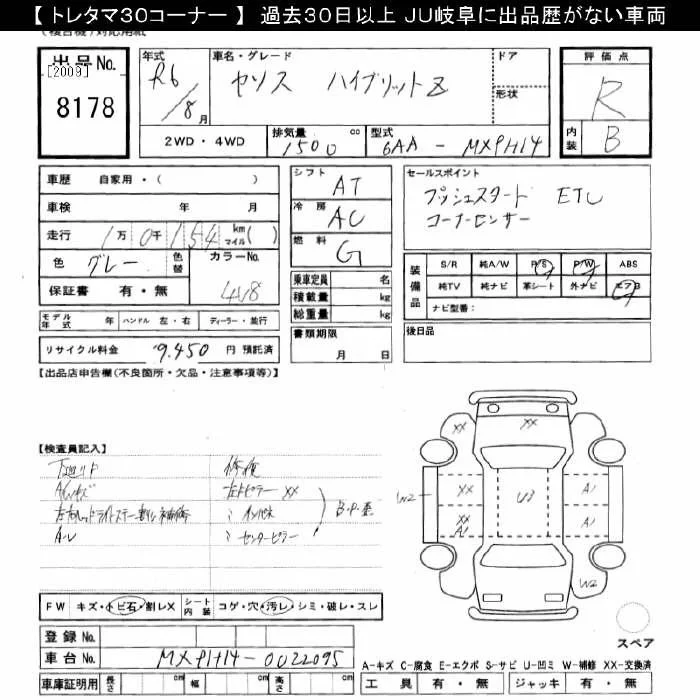 【 トレタマ30コーナー 】 過去30日以上 JU岐阜に出品歴がない車両
出品No.
[2009]
8178
年式
R6/8月
車名・グレード
ヤリス ハイブリットZ
ドア
形状
評価点
R
内装
B
2WD・4WD
排気量
1500 cc
型式
6AA - MXPH14
車歴 自家用・( )
車検 年 月
走行 1万0千154 km マイル( )
色 グレー 色替
カラーNo.
4V8
保証書 有・無
シフト
AT
冷房
AC
燃料
G
乗車定員 名
積載量 kg
総重量 kg
書類期限
月 日
セールスポイント
プッシュスタート ETC
コーナーセンサー
装備品
S/R 純A/W P/S P/W ABS
純TV 純ナビ 革シート 外ナビ エアB
ナビ型番:
後日品
モデル年式 年 ハンドル 左・右 ディーラー・並行
リサイクル料金 9,450 円 預託済
【出品店申告欄(不良箇所・欠品・注意事項等)】
【検査員記入】
下廻りサビ 修復
AWキズ 左Fピラー XX
左右ヘッドライトステー割れ補修 〃 インパネ
A-U 〃 センターピラー
B・P・里
XX XX
W2 XX U3 A1
XX A1 A1
W2
FW キズ・トビ石・割レX シート内装 コゲ・穴・汚レ・シミ・破レ・スレ
登録No.
車台No. MXPH14-0022095
車庫証明用 長さ cm 幅 cm 高さ cm
スペア
A-キズ C-腐食 E-エクボ S-サビ U-凹ミ W-補修 XX-交換済
工具 有・無 ジャッキ 有・無